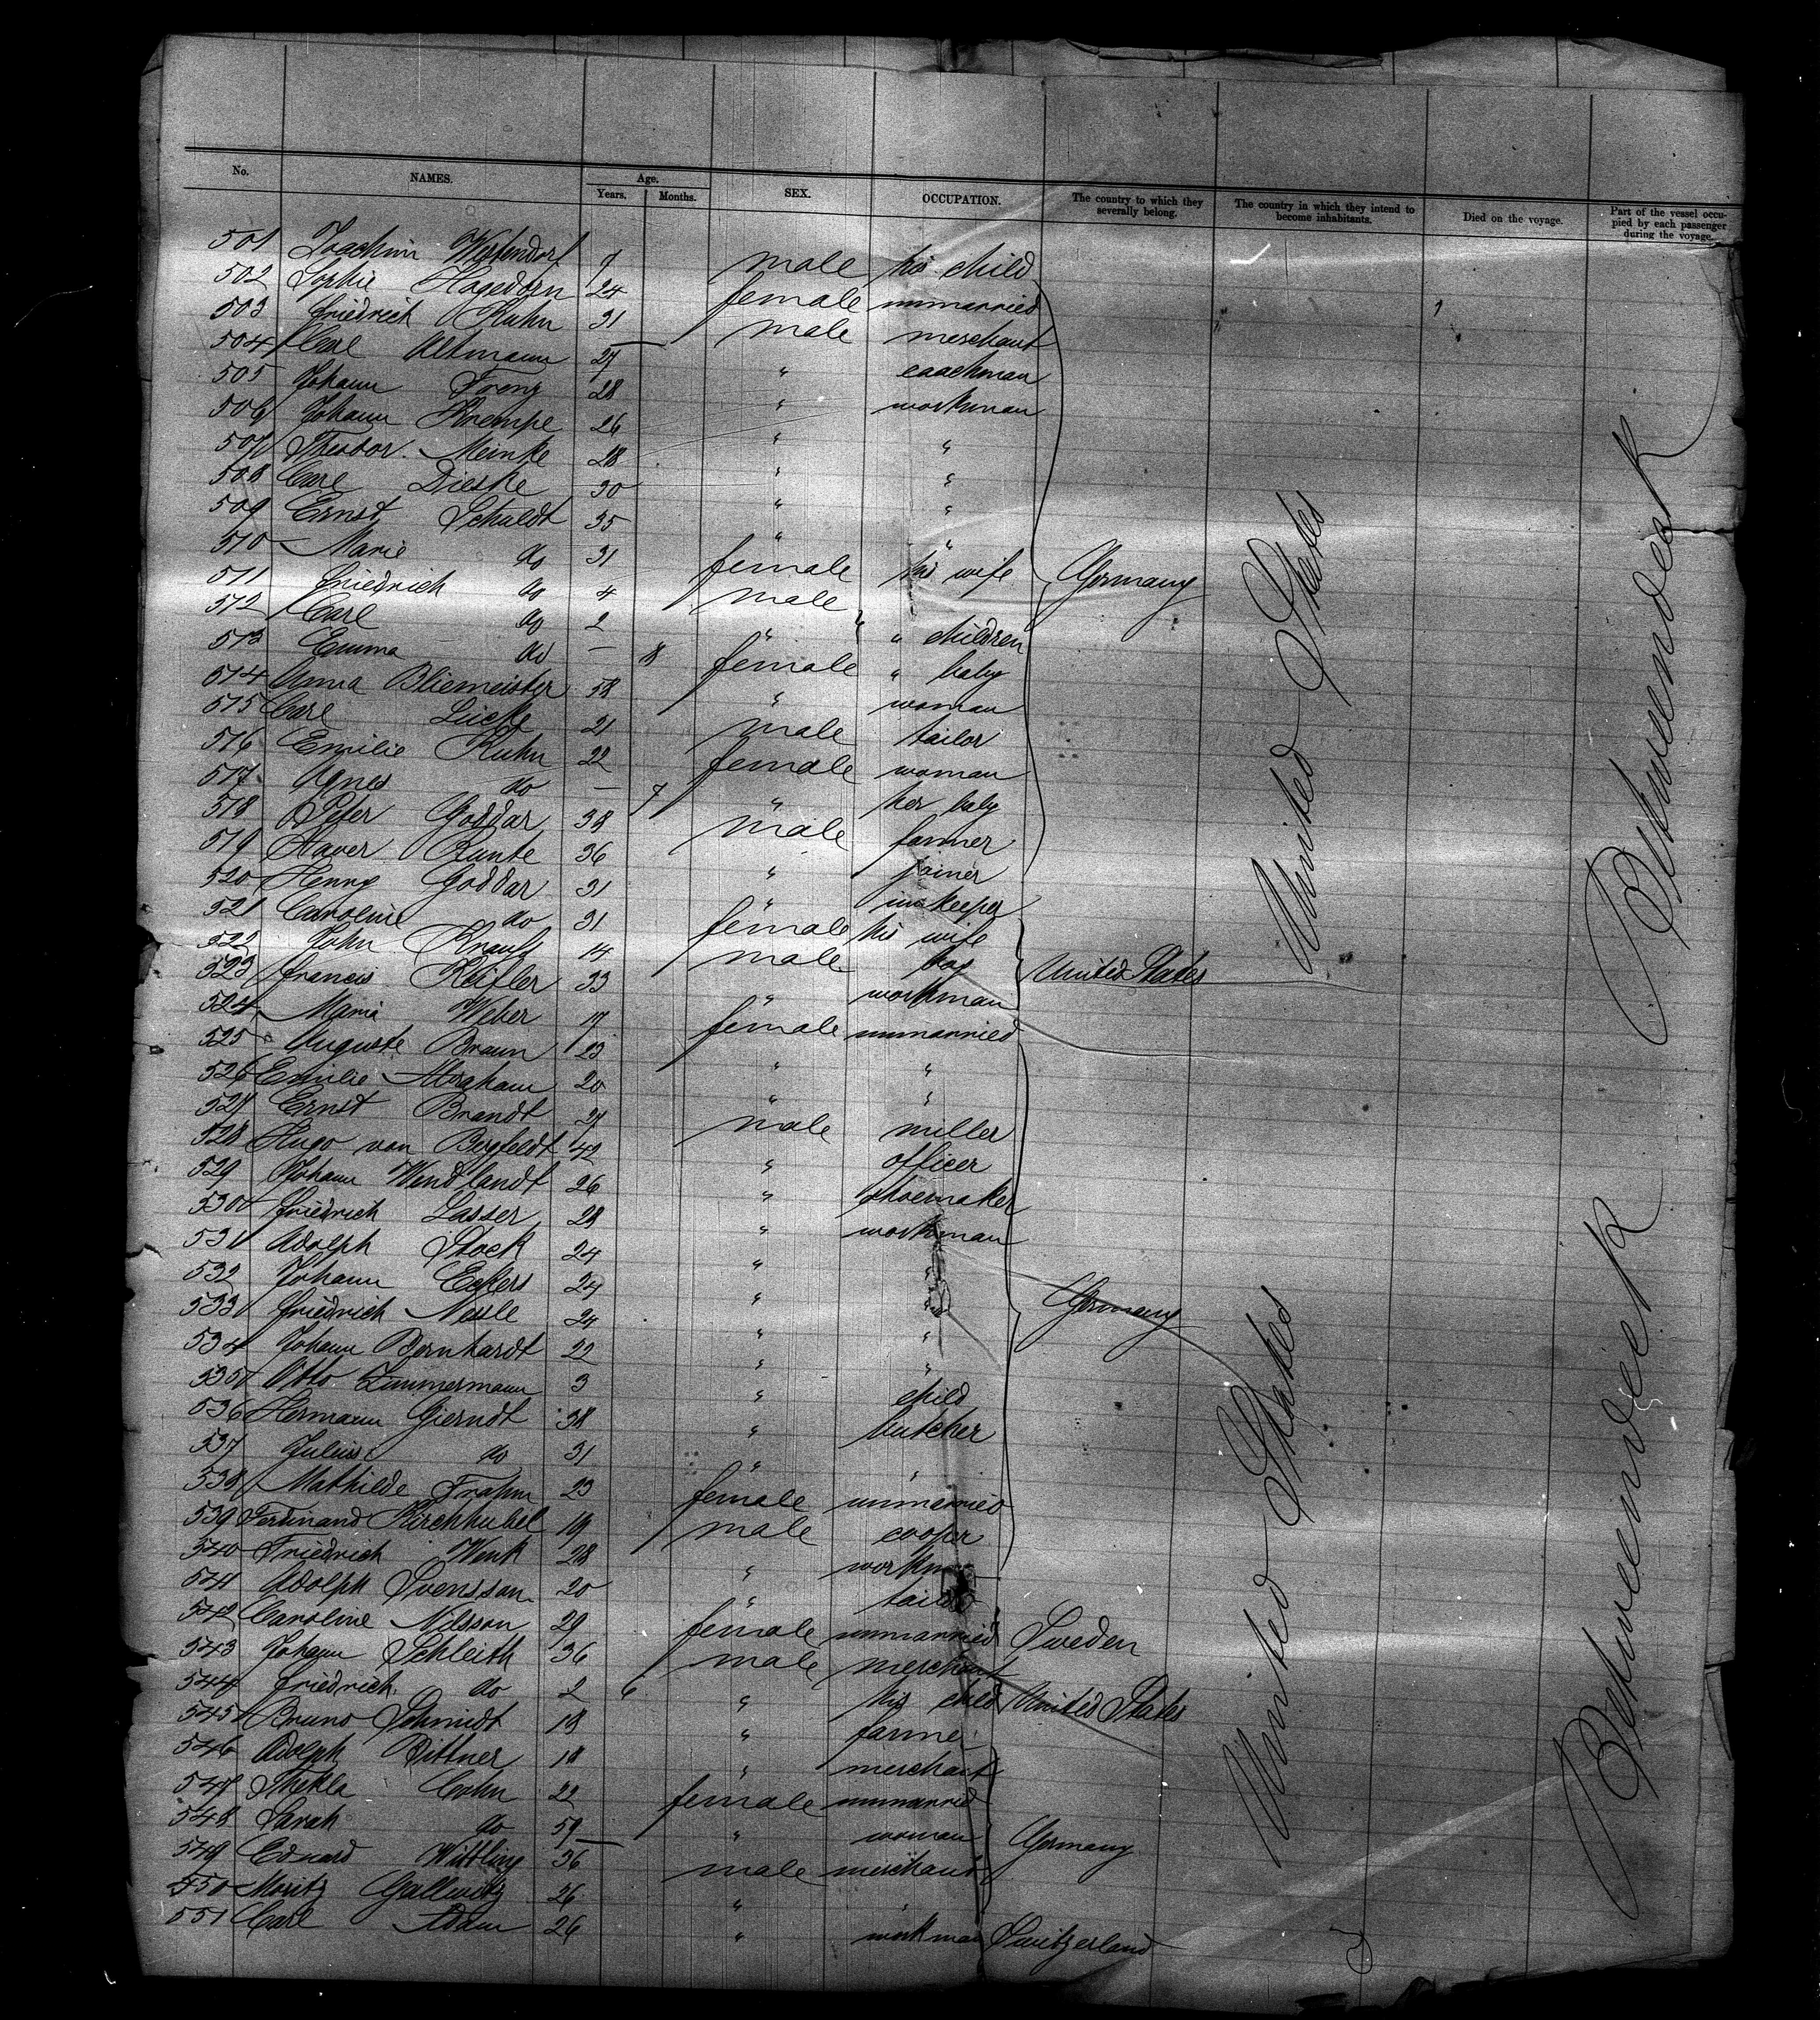 No. NAMES. Age. Years. Months. SEX. OCCUPATION. The country to which they severally belong. The country in which they intend to become inhabitants. Died on the voyage. Part of the vessel occupied by each passenger during the voyage.
501 Joachim Westendorf 7 male his child
502 Sophie Hagedorn 24 female unmarried
503 Friedrich Kuhn 31 male merchant
504 Carl Altmann 27 " coachman
505 Johann 28 " workman
506 Johann Krempe 26 " "
507 Theodor Meinke 28 " "
508 Carl Dieske 30 " "
509 Ernst Schuldt 35 " "
510 Marie do 31 female his wife Germany
511 Friedrich do 4 male
512 Carl do 2 " " children
513 Emma do — 8 female " baby
514 Anna Bliemeister 58 " woman
515 Carl Lücke 21 male tailor
516 Emilie Kuhn 22 female woman
517 Agnes do — 7 " her baby
518 Peter Goddar 38 male farmer
519 Xaver Runte 36 " joiner
520 Henny Goddar 31 " innkeeper
521 Caroline do 31 female his wife
522 John Krauss 14 male boy United States
523 Francis Keifler 33 " workman
524 Maria Weber 17 female unmarried
525 Auguste Braun 23 " "
526 Emilie Abraham 20 " "
527 Ernst Brandt 27 male miller
528 Hugo von Bergfeldt 42 " officer
529 Johann Wendlandt 26 " shoemaker
530 Friedrich Lasser 28 " workman
531 Adolph Stock 24 " "
532 Johann Eckers 24 " " Germany
533 Friedrich Nesle 24 " "
534 Johann Bernhardt 22 " "
535 Otto Zimmermann 3 " child
536 Hermann Gierndt 38 " butcher
537 Julius do 31 " "
538 Mathilde Frahm 23 female unmarried
539 Ferdinand Kirchhubel 19 male cooper
540 Friedrich Wenk 28 " workm
541 Adolph Svensson 20 " tailor
542 Caroline Nilsson 29 female unmarried Sweden
543 Johann Schleith 36 male merchant
544 Friedrich do 2 6 " his child United States
545 Bruno Schmidt 18 " farmer
546 Adolph Bittner 18 " merchant
547 Thekla Cohn 22 female unmarried
548 Sarah do 59 " woman Germany
549 Eduard Wittling 36 male merchant
550 Moritz Gallwitz 26 " "
551 Carl Adam 26 " workman Switzerland
United States
United States
Betweendeck
Betweendeck